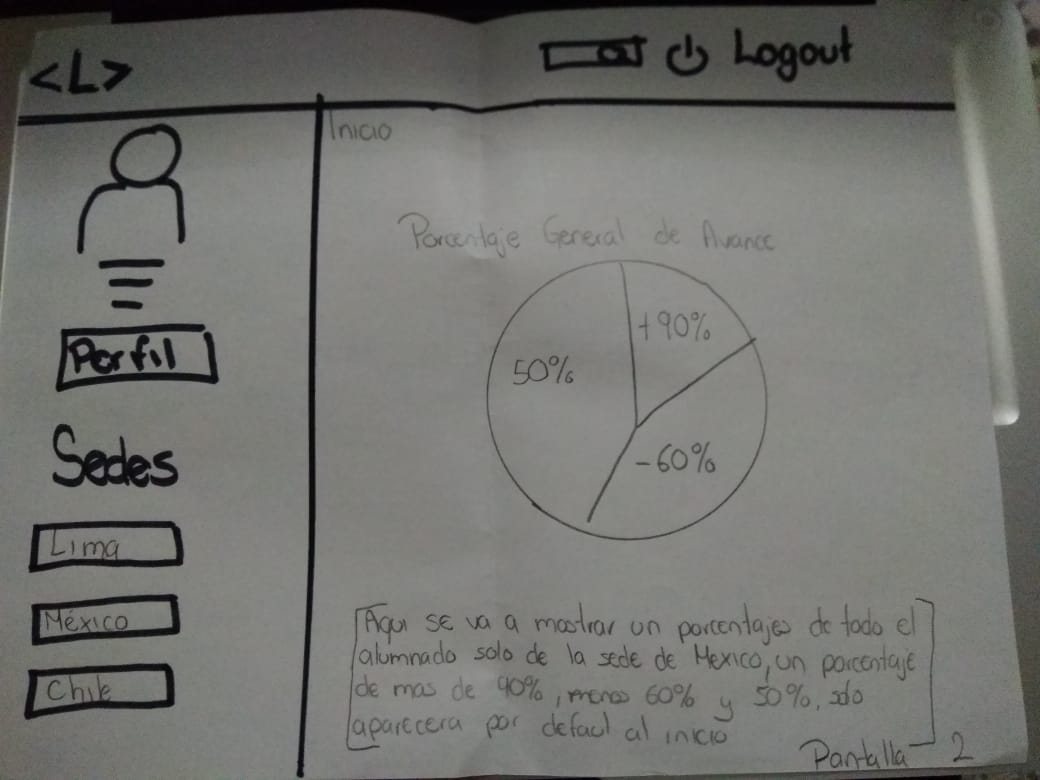 <L>
Logout
Inicio
Perfil
Sedes
Lima
México
Chile
Porcentaje General de Avance
+90%
50%
-60%
Aqui se va a mostrar un porcentajes de todo el
alumnado solo de la sede de Mexico, un porcentaje
de mas de 90%, menos 60% y 50%, solo
aparecera por defaul al inicio
Pantalla 2